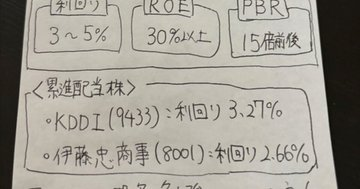 利回り ROE PBR
3～5% 30%以上 15倍前後
<累進配当株>
・KDDI(9433):利回り 3,27%
・伊藤忠商事(8001):利回り 2.66%